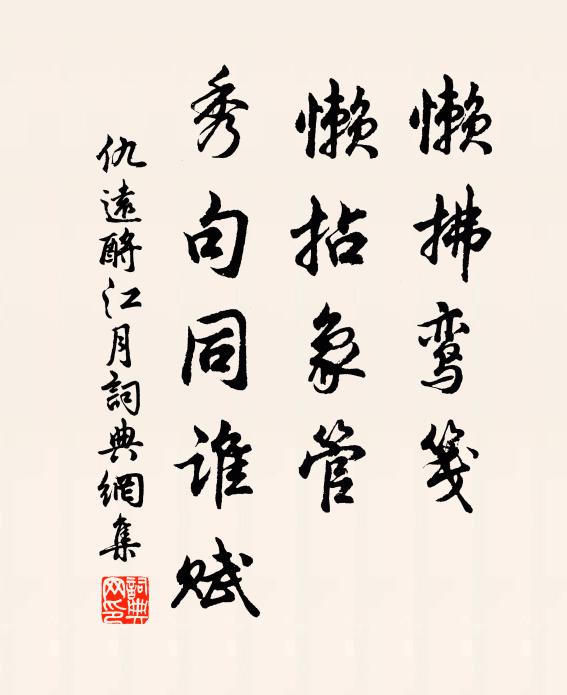 懒拂鸾笺
懒拈象管
秀句同谁赋
仇遠酹江月詞典網集
詞典网印